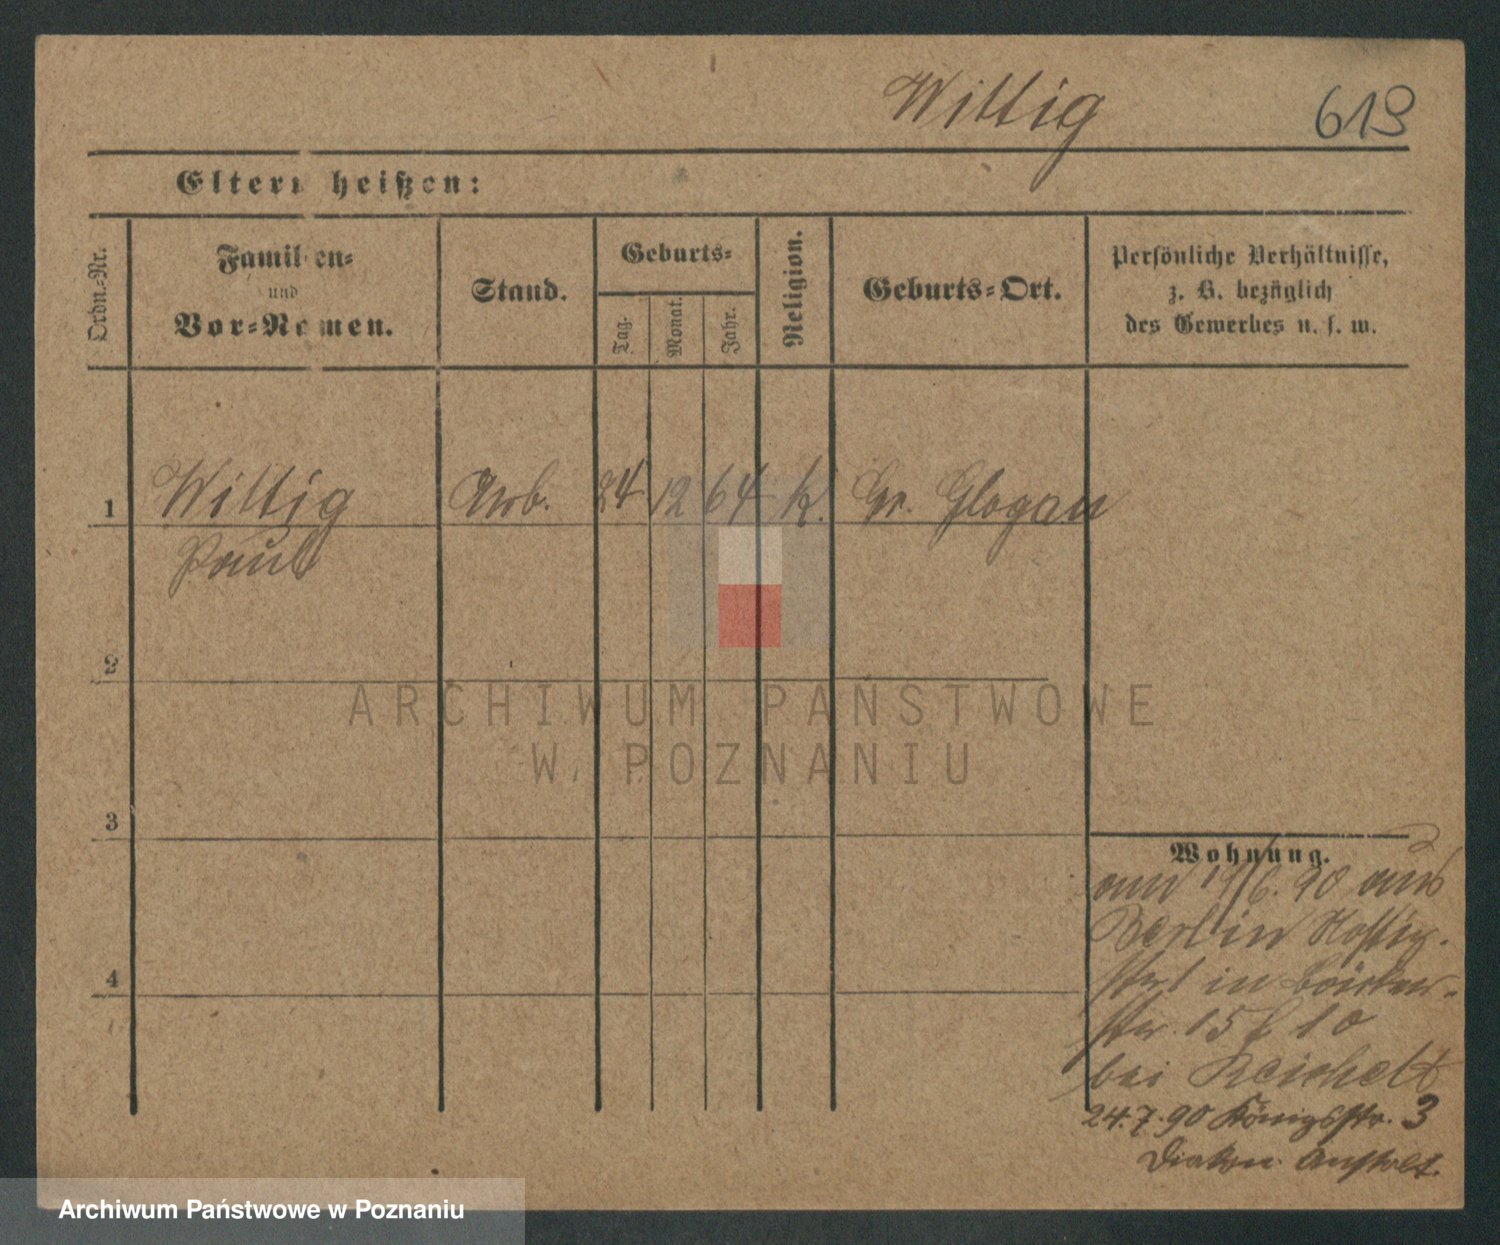 Wittig 613
Eltern heißen:
Ordn.-Nr.
Familien-
und
Vor-Namen.
Stand.
Geburts-
Tag.
Monat.
Jahr.
Religion.
Geburts-Ort.
Persönliche Verhältnisse,
z. B. bezüglich
des Gewerbes u. s. w.
1 Wittig Arb. 24 12 64 k. Gr. Glogau
Paul
2
3
4
Wohnung.
19/6.90 aus
Berlin
in
str. 15 10
bei Reichelt
24.7.90 Königsstr. 3
Diakon. Anstalt.
ARCHIWUM PAŃSTWOWE
W POZNANIU
Archiwum Państwowe w Poznaniu